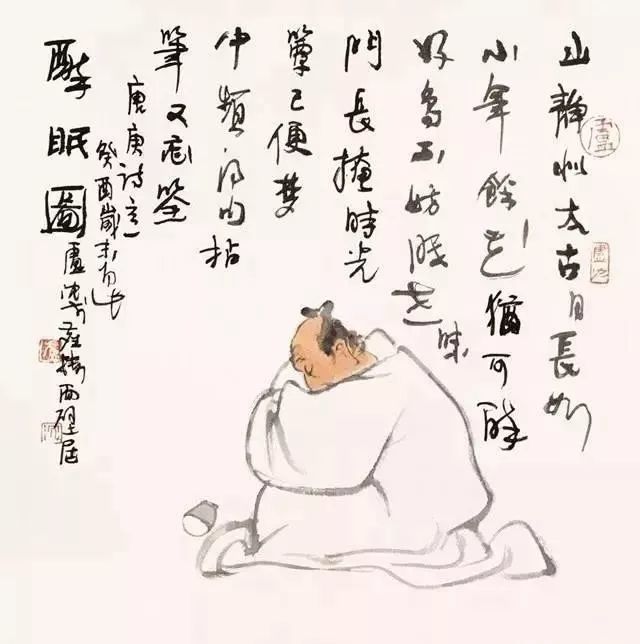 山靜似太古日長如
小年餘花猶可醉
好鳥不妨眠世味
門長掩時光
簟已便夢
中頻得句拈
筆又忘筌
唐庚詩意
癸酉歲末
醉眠圖
盧沉西壁居
盧
盧沉